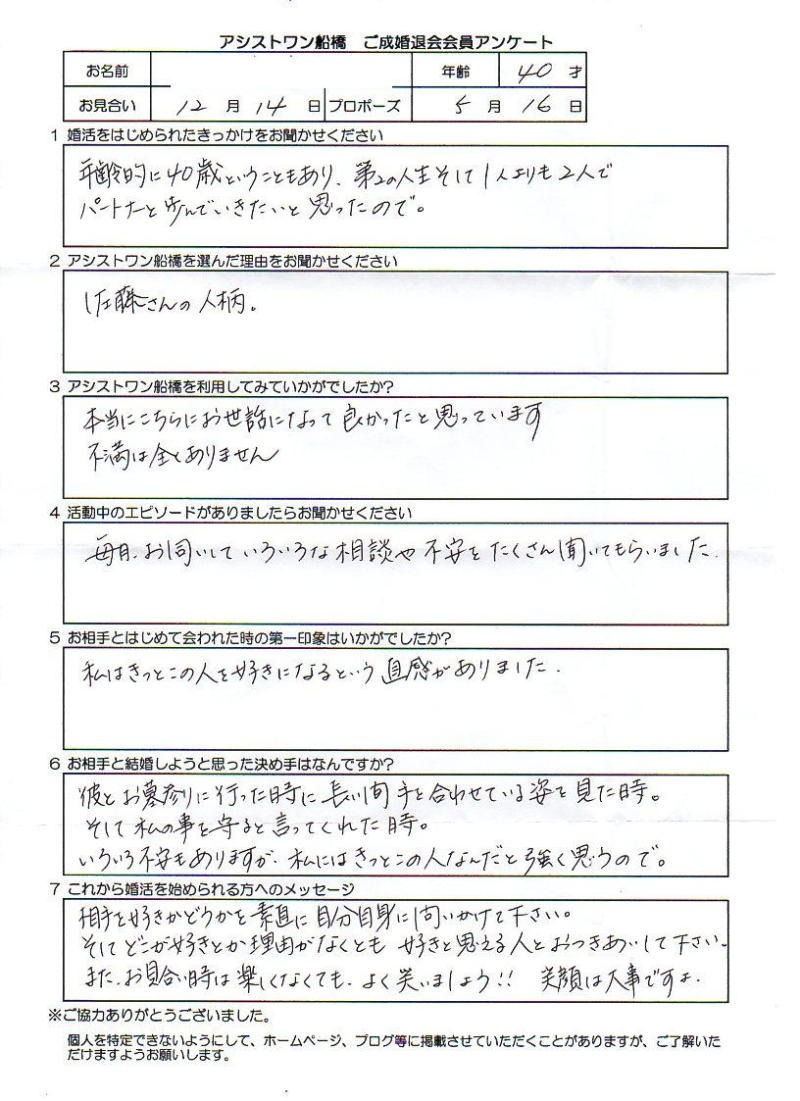 アシストワン船橋　ご成婚退会会員アンケート
お名前　年齢　40 才
お見合い　12 月 14 日　プロポーズ　5 月 16 日
1 婚活をはじめられたきっかけをお聞かせください
年齢的に40歳ということもあり、第2の人生そして1人よりも2人で
パートナーと歩んでいきたいと思ったので。
2 アシストワン船橋を選んだ理由をお聞かせください
佐藤さんの人柄。
3 アシストワン船橋を利用してみていかがでしたか?
本当にこちらにお世話になって良かったと思っています
不満は全くありません
4 活動中のエピソードがありましたらお聞かせください
毎日、お伺いしていろいろな相談や不安をたくさん聞いてもらいました.
5 お相手とはじめて会われた時の第一印象はいかがでしたか?
私はきっとこの人を好きになるという直感がありました.
6 お相手と結婚しようと思った決め手はなんですか?
彼とお墓参りに行った時に長い間手を合わせている姿を見た時。
そして私の事を守ると言ってくれた時。
いろいろ不安もありますが、私にはきっとこの人なんだと強く思うので。
7 これから婚活を始められる方へのメッセージ
相手を好きかどうかを素直に自分自身に問いかけて下さい。
そしてどこが好きとか理由がなくとも好きと思える人とおつきあいして下さい.
また、お見合い時は楽しくなくても、よく笑いましょう!! 笑顔は大事ですよ.
※ご協力ありがとうございました。
個人を特定できないようにして、ホームページ、ブログ等に掲載させていただくことがありますが、ご了解いた
だけますようお願いします。